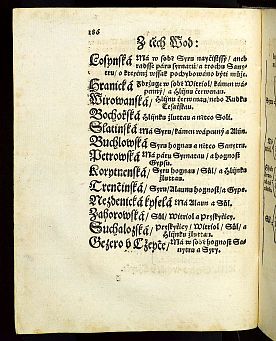 186
Z těch Wod:
Losynská/ Má w sobě Syru nayčistšý/ aneb
radsse páru syrnatú/ a trochu Sanytru/
o kterémž wssak pochybowáno býti může.
Hranická/ Zdržuge w sobě Witriol/ kámen wápenný/
a Hlijnu čerwenau.
Wirowanská/ Hlijnu čerwenau/ nebo Rudku
Tesařskau.
Bochořská Hlijnku žluttau a něco Soli.
Slatinská Má Syru/ kámen wápenný a Alún.
Buchlowská Syru hognau a něco Sanytru.
Petrowská Má páru Syrnatau/ a hognost
Gypsu.
Korytnenská/ Syru hognau/ Sůl/ a Hlijnku
žluttau.
Trenčinská/ Syru/ Alaunu hognost/ a Gyps.
Nezdenická kyselá Má Alaun a Sůl.
Zahorowská/ Sůl/ Witriol a Pryskyřicy.
Suchaložská/ Pryskyřicy/ Witriol/ Sůl/ a
Hlijnku žluttau.
Gezero v Cžepče/ Má w sobě hognost Sanytru
a Syry.